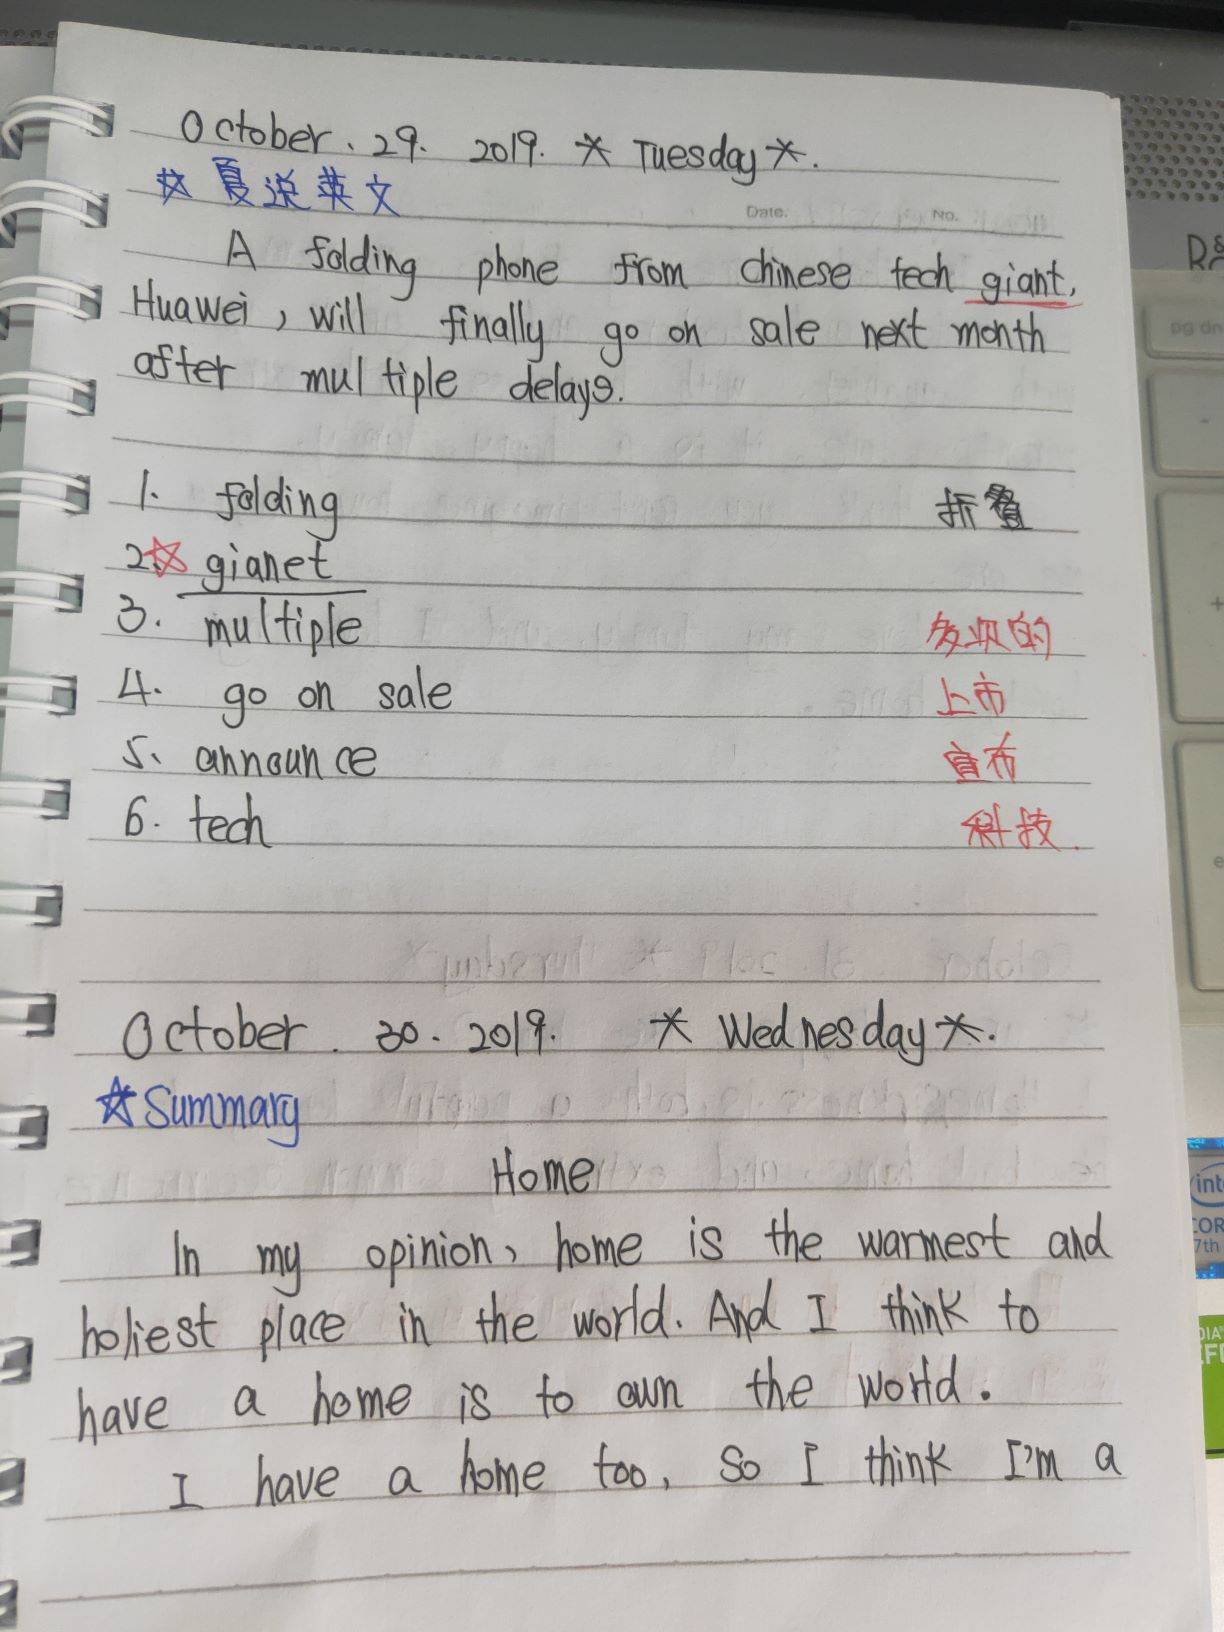 October. 29. 2019. * Tuesday *.
☆ 夏说英文
Date. No.
A folding phone from chinese tech giant,
Huawei, will finally go on sale next month
after multiple delays.
1. folding 折叠
2.☆ gianet
3. multiple 多次的
4. go on sale 上市
5、 announce 宣布
6. tech 科技.
October. 30. 2019. * Wednesday *.
☆ Summary
Home
In my opinion, home is the warmest and
holiest place in the world. And I think to
have a home is to own the world.
I have a home too, so I think I'm a
pg dn